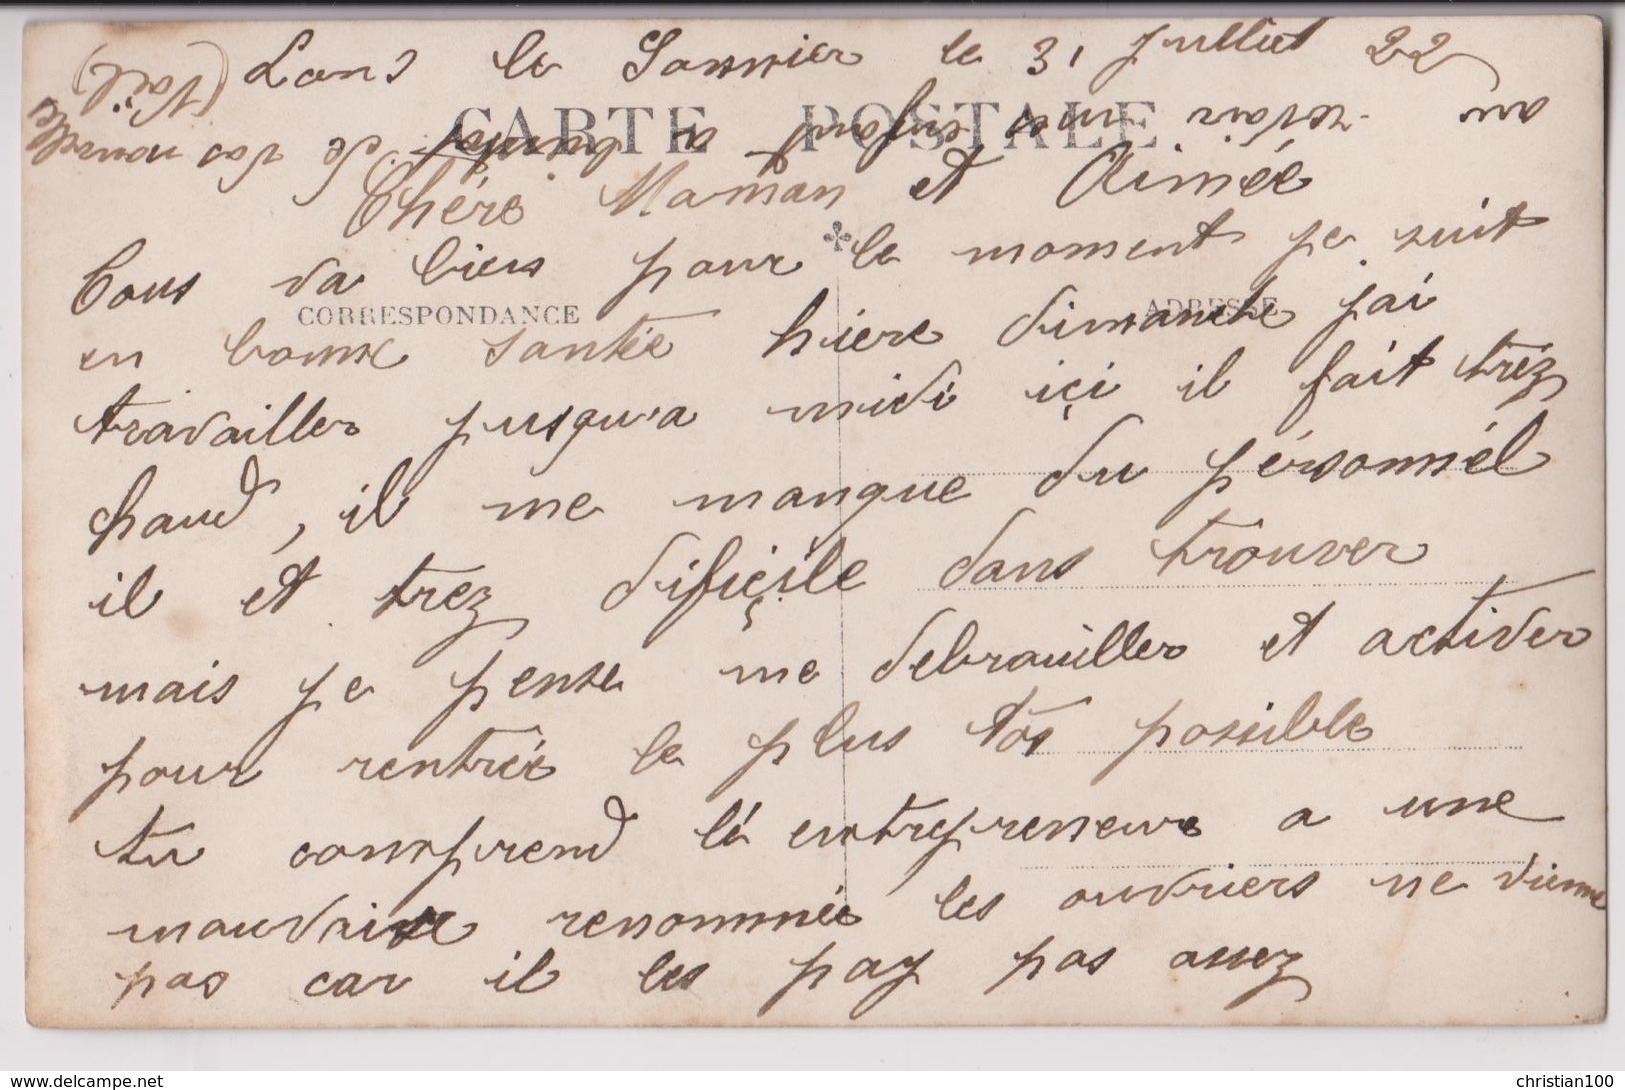 Lons le Sonnier le 31 juillet 22
CARTE POSTALE
Chére Maman et Aimée
Tous va biens pour le moment je suit
CORRESPONDANCE
ADRESSE
en bonne santée hiere dimanche j'ai
travailler jusqu'a midi içi il fait tréz
chaud, il me manque du pérsonnél
il et trez difiçile dans trouver
mais je pense me debrouiller et activer
pour rentrée le plus tôs posible
tu comprend lé entrepreneur a une
mauvaise renommée les ouvriers ne vienne
pas car il les pay pas assez
au revoir mes enfant a bientot de vos nouvelle
(Noël)
www.delcampe.net
christian100